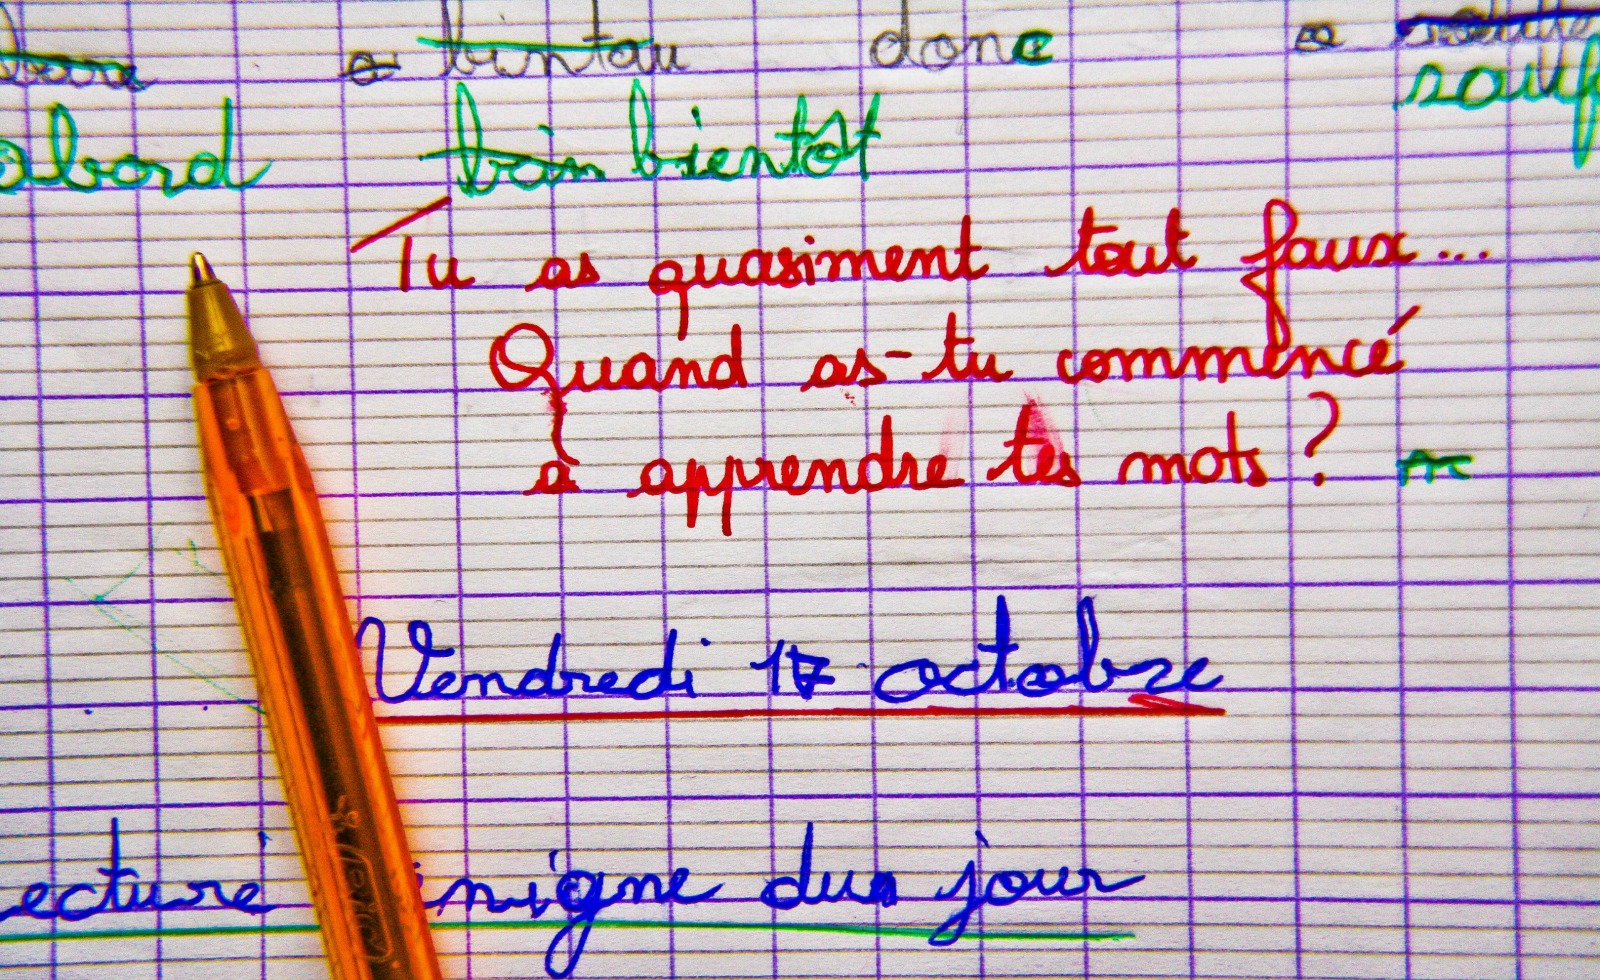 bintau donc
abord bientôt sauf
Tu as quasiment tout faux...
Quand as-tu commencé
à apprendre tes mots ?
Vendredi 17 octobre
ecture inigme du jour